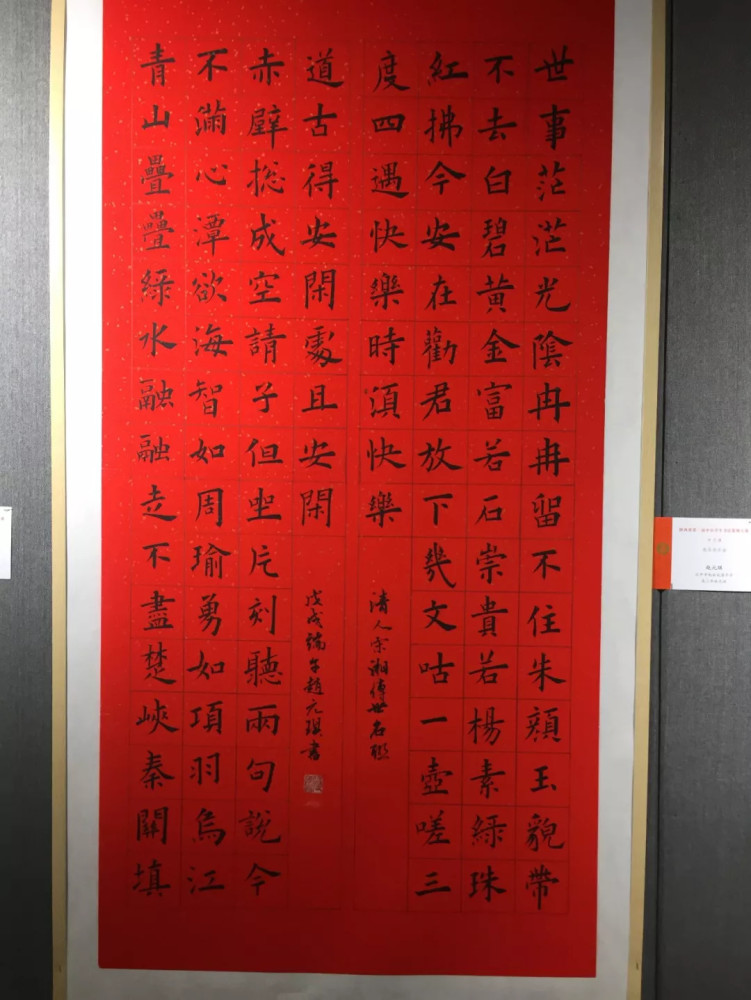 世事茫茫光陰冉冉留不住朱顏玉貌帶
不去白碧黃金富若石崇貴若楊素綠珠
紅拂今安在勸君放下幾文咕一壺嗟三
度四遇快樂時須快樂
清人宋湘傳世名聯
青山疊疊綠水融融走不盡楚峽秦關填
不滿心潭欲海智如周瑜勇如項羽烏江
赤壁摠成空請子但坐片刻聽兩句說今
道古得安閑處且安閑
戊戌端午趙元書